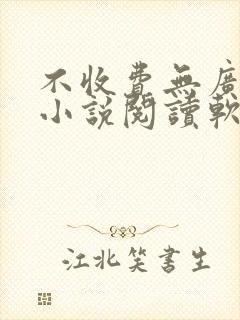 不收費無廣
小說閱讀軟
江北笑書生